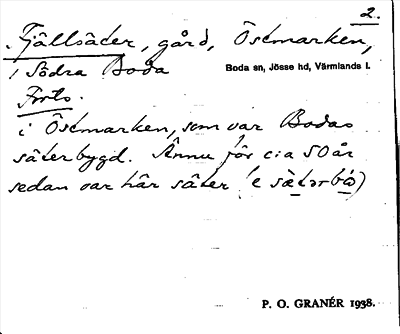 2.
Fjällsäter, gård, Östmarken,
i Södra Boda Boda sn, Jösse hd, Värmlands l.
Forts.
i Östmarken, som var Bodas
säterbygd. Ännu för c:a 50 år
sedan var här säter (e sætər-bó)
P. O. GRANÉR 1938.